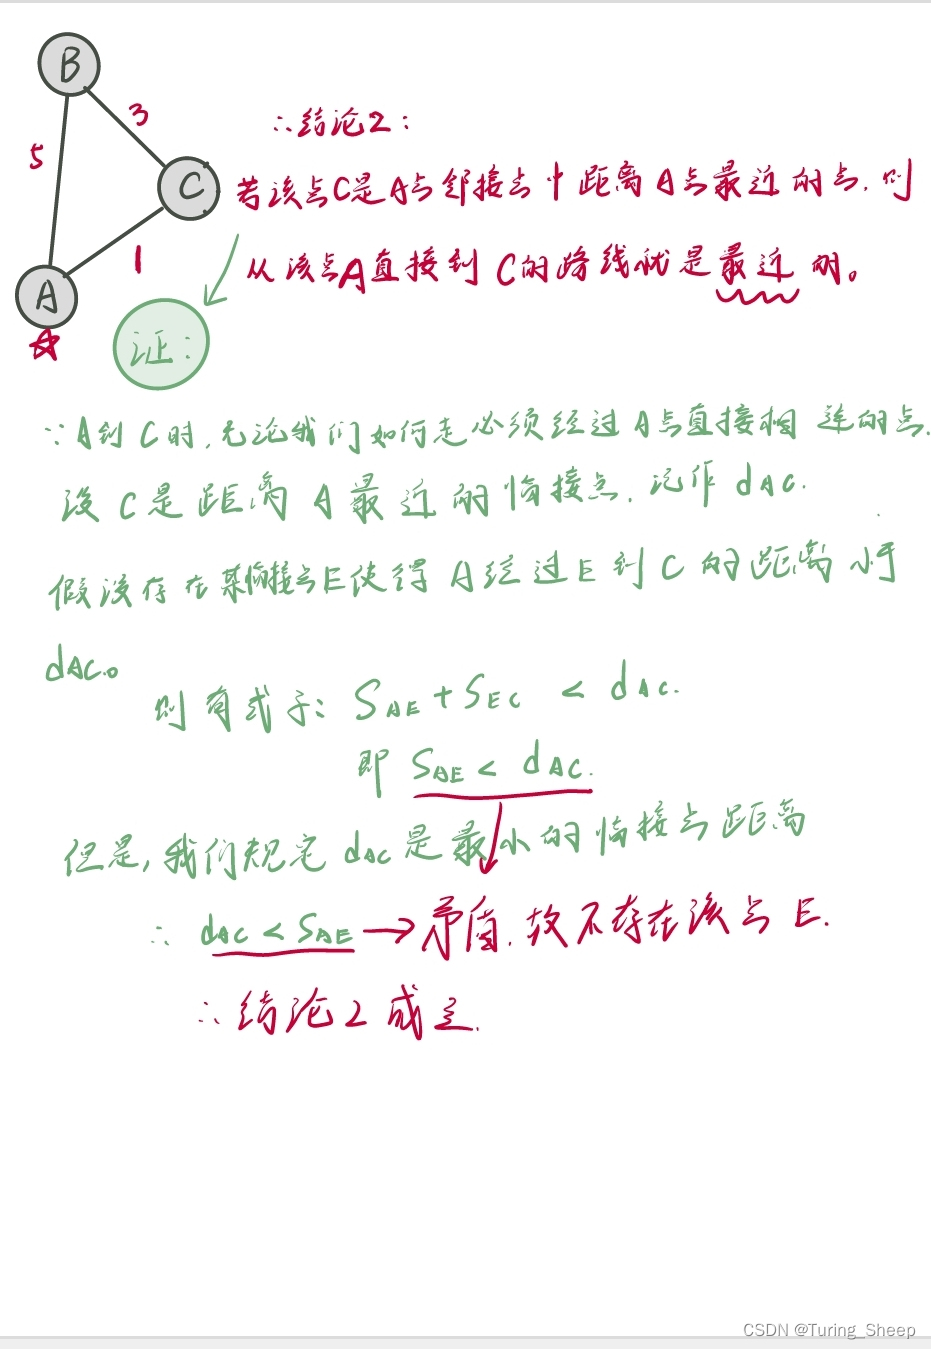 B
3
∴结论2:
5
C
若该点C是A点邻接点中距离A点最近的点,则
1
从该点A直接到C的路线就是最近的。
A
证:
∵A到C时,无论我们如何走必须经过A点直接相连的点.
设C是距离A最近的临接点.记作dAC.
假设存在某临接点E使得A经过E到C的距离小于
dAC。
则有式子: SAE+SEC < dAC.
即 SAE < dAC.
但是,我们规定dAC是最小的临接点距离
∴ dAC < SAE → 矛盾.故不存在该点E.
∴结论2成立.
CSDN @Turing_Sheep